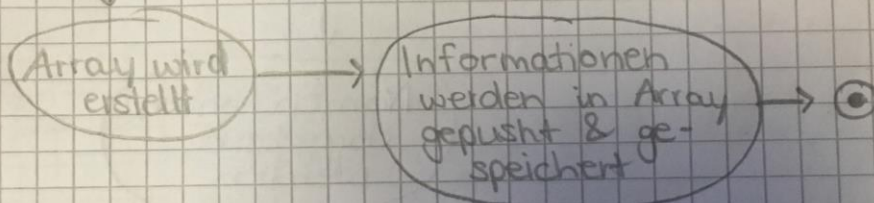 Array wird
erstellt
Informationen
werden in Array
gepusht & ge-
speichert